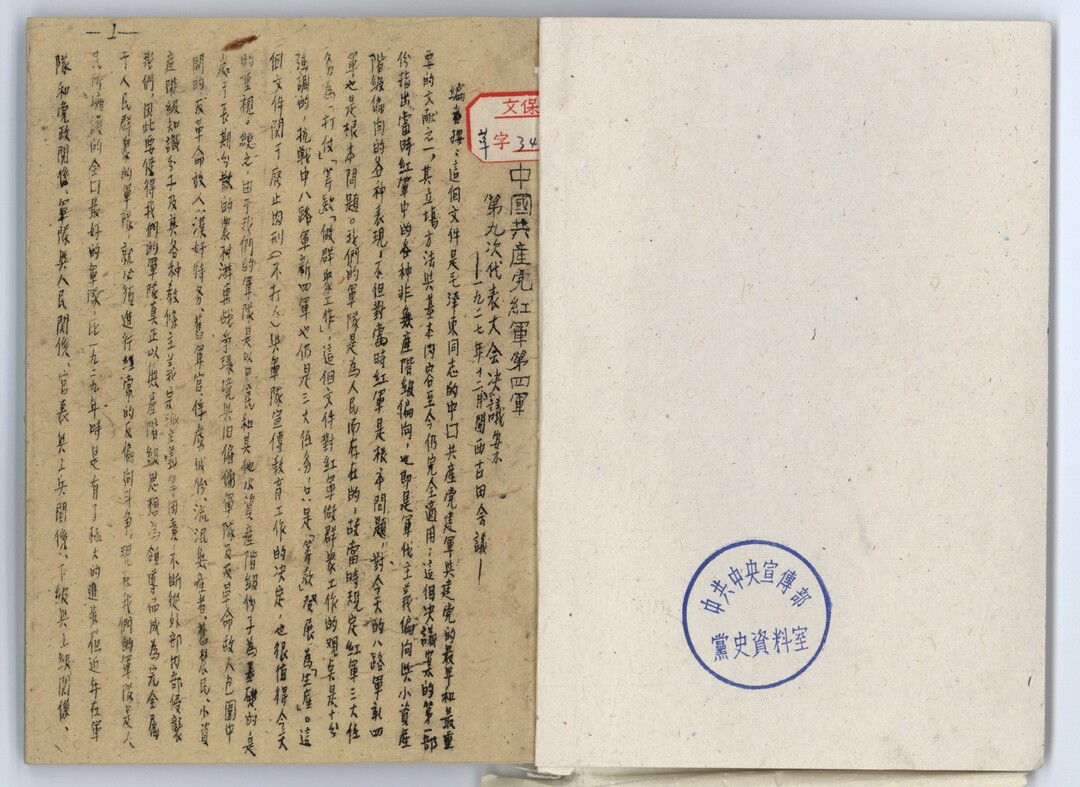 —1—
文保
字 34
中國共產党紅軍第四軍
第九次代表大会决議案
——一九二七年十二月閩西古田会議——
編者按：這個文件是毛泽東同志的中口共產党建軍與建党的最早和最重
要的文献之一，其立場方法與基本内容至今仍完全適用；這個决議案的第一部
份指出當時紅軍中的各种非無產階級偏向，也即是單優主義偏向與小資產
階級偏向的各种表現，不但對當時紅軍是根本問題，對今天的八路軍新四
軍也是根本問題。我們的軍隊是為人民而存在的，故當時規定紅軍三大任
务為「打仗」「筹款」「做群眾工作」，這個文件對紅軍做群眾工作的观點是十分
强調的，抗戰中八路軍新四軍也仍是三大任务，只是「筹款」發展為「生產」。這
個文件関于廢止肉刑（不打人）與軍隊宣傳教育工作的决定，也很值得今天
的重視。總之，由于我們的軍隊是以農民和其他小資產階級份子為基礎的，是
處于長期分散的農村游擊战争環境與旧僱傭軍隊及反革命敌人包圍中
間的，反革命敌人、漢奸特务、舊軍官、俘虜成份、流氓無產者、舊農民、小資
產階級知識分子及其各种教條主義宗派主義等因素，不断從外部内部侵襲
我們，因此要使得我們的軍隊真正以無產階級思想為領導而成為完全属
于人民群眾的軍隊，就必須進行經常的反偏向斗争。現在我們的軍隊是人
民所擁護的全口最好的軍隊，比一九二九年時是有了極大的進步，但近年在軍
隊和党政関係、軍隊與人民関係、官長與士兵関係、下級與上級関係、
中共中央宣傳部
黨史資料室